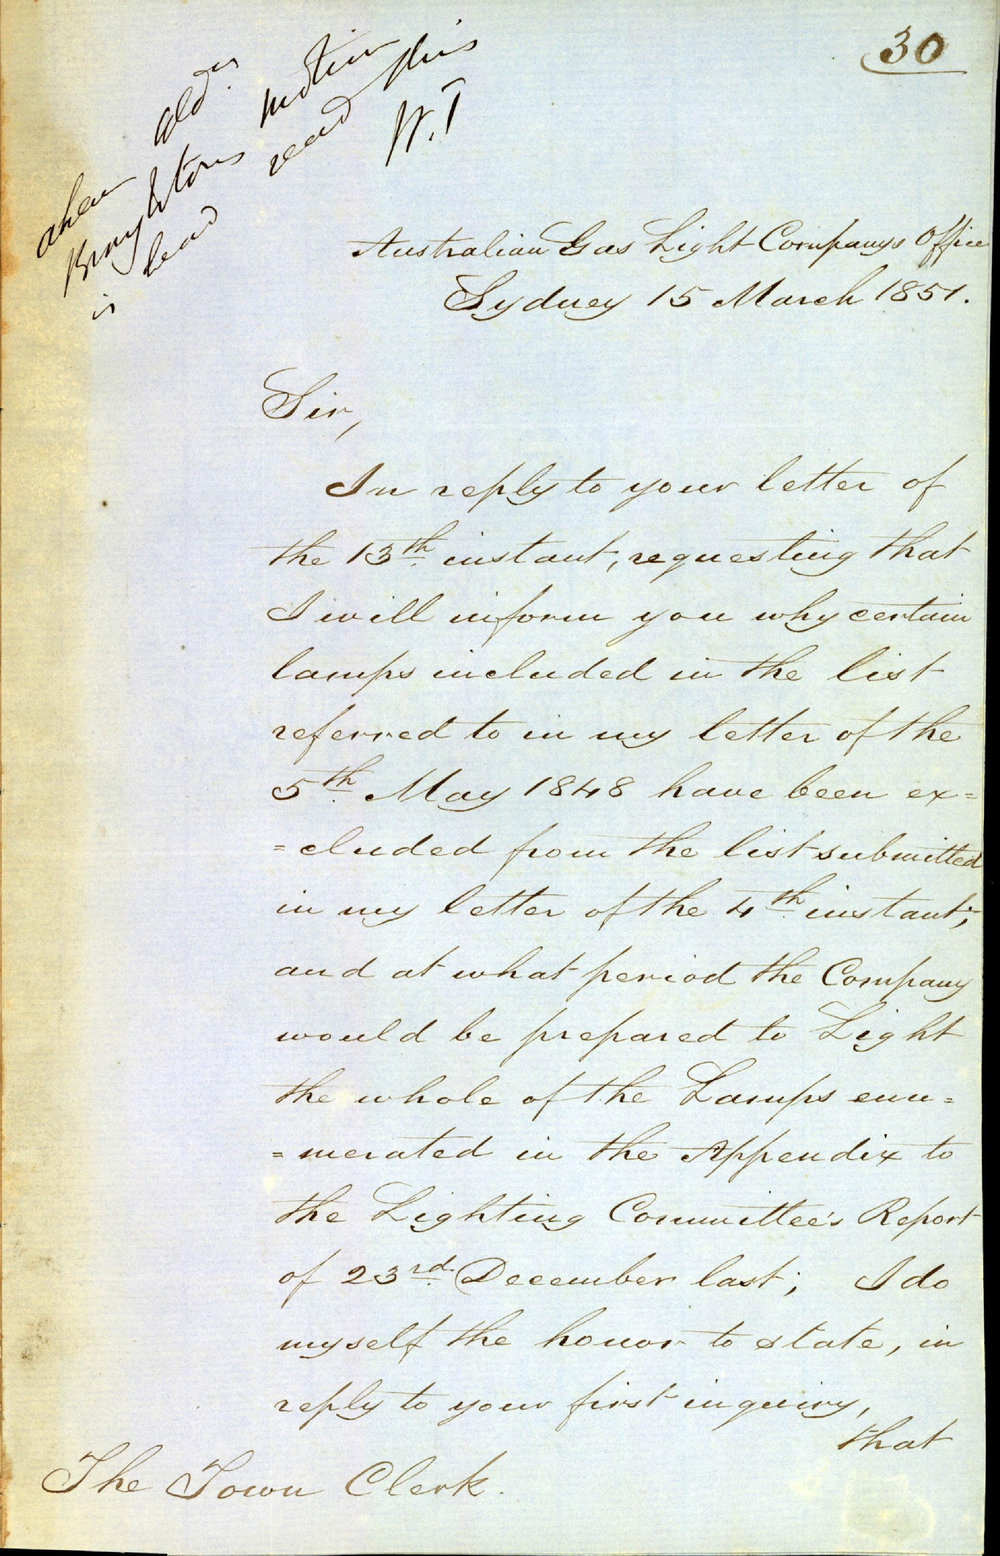 30
when Aldn
Broughton's motion
is read read this
W.T
Australian Gas Light Company's Office
Sydney 15 March 1851.
Sir,
In reply to your letter of
the 13th instant, requesting that
I will inform you why certain
lamps included in the list
referred to in my letter of the
5th May 1848 have been ex=
=cluded from the list submitted
in my letter of the 4th instant;
and at what period the Company
would be prepared to Light
the whole of the Lamps enu=
=merated in the Appendix to
the Lighting Committee's Report
of 23rd December last; I do
myself the honor to state, in
reply to your first inquiry,
that
The Town Clerk.